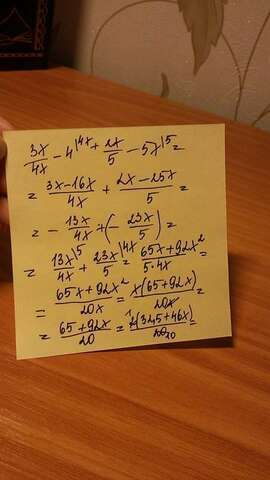 3x/4x - 4|4x + 2x/5 - 5x|5 =
= 3x-16x/4x + 2x-25x/5 =
= - 13x/4x + (- 23x/5) =
= 13x|5/4x + 23x|4x/5 = 65x+92x²/5·4x =
= 65x+92x²/20x = x(65+92x)/20x =
= 65+92x/20 = 2(32,5+46x)/20 10 =